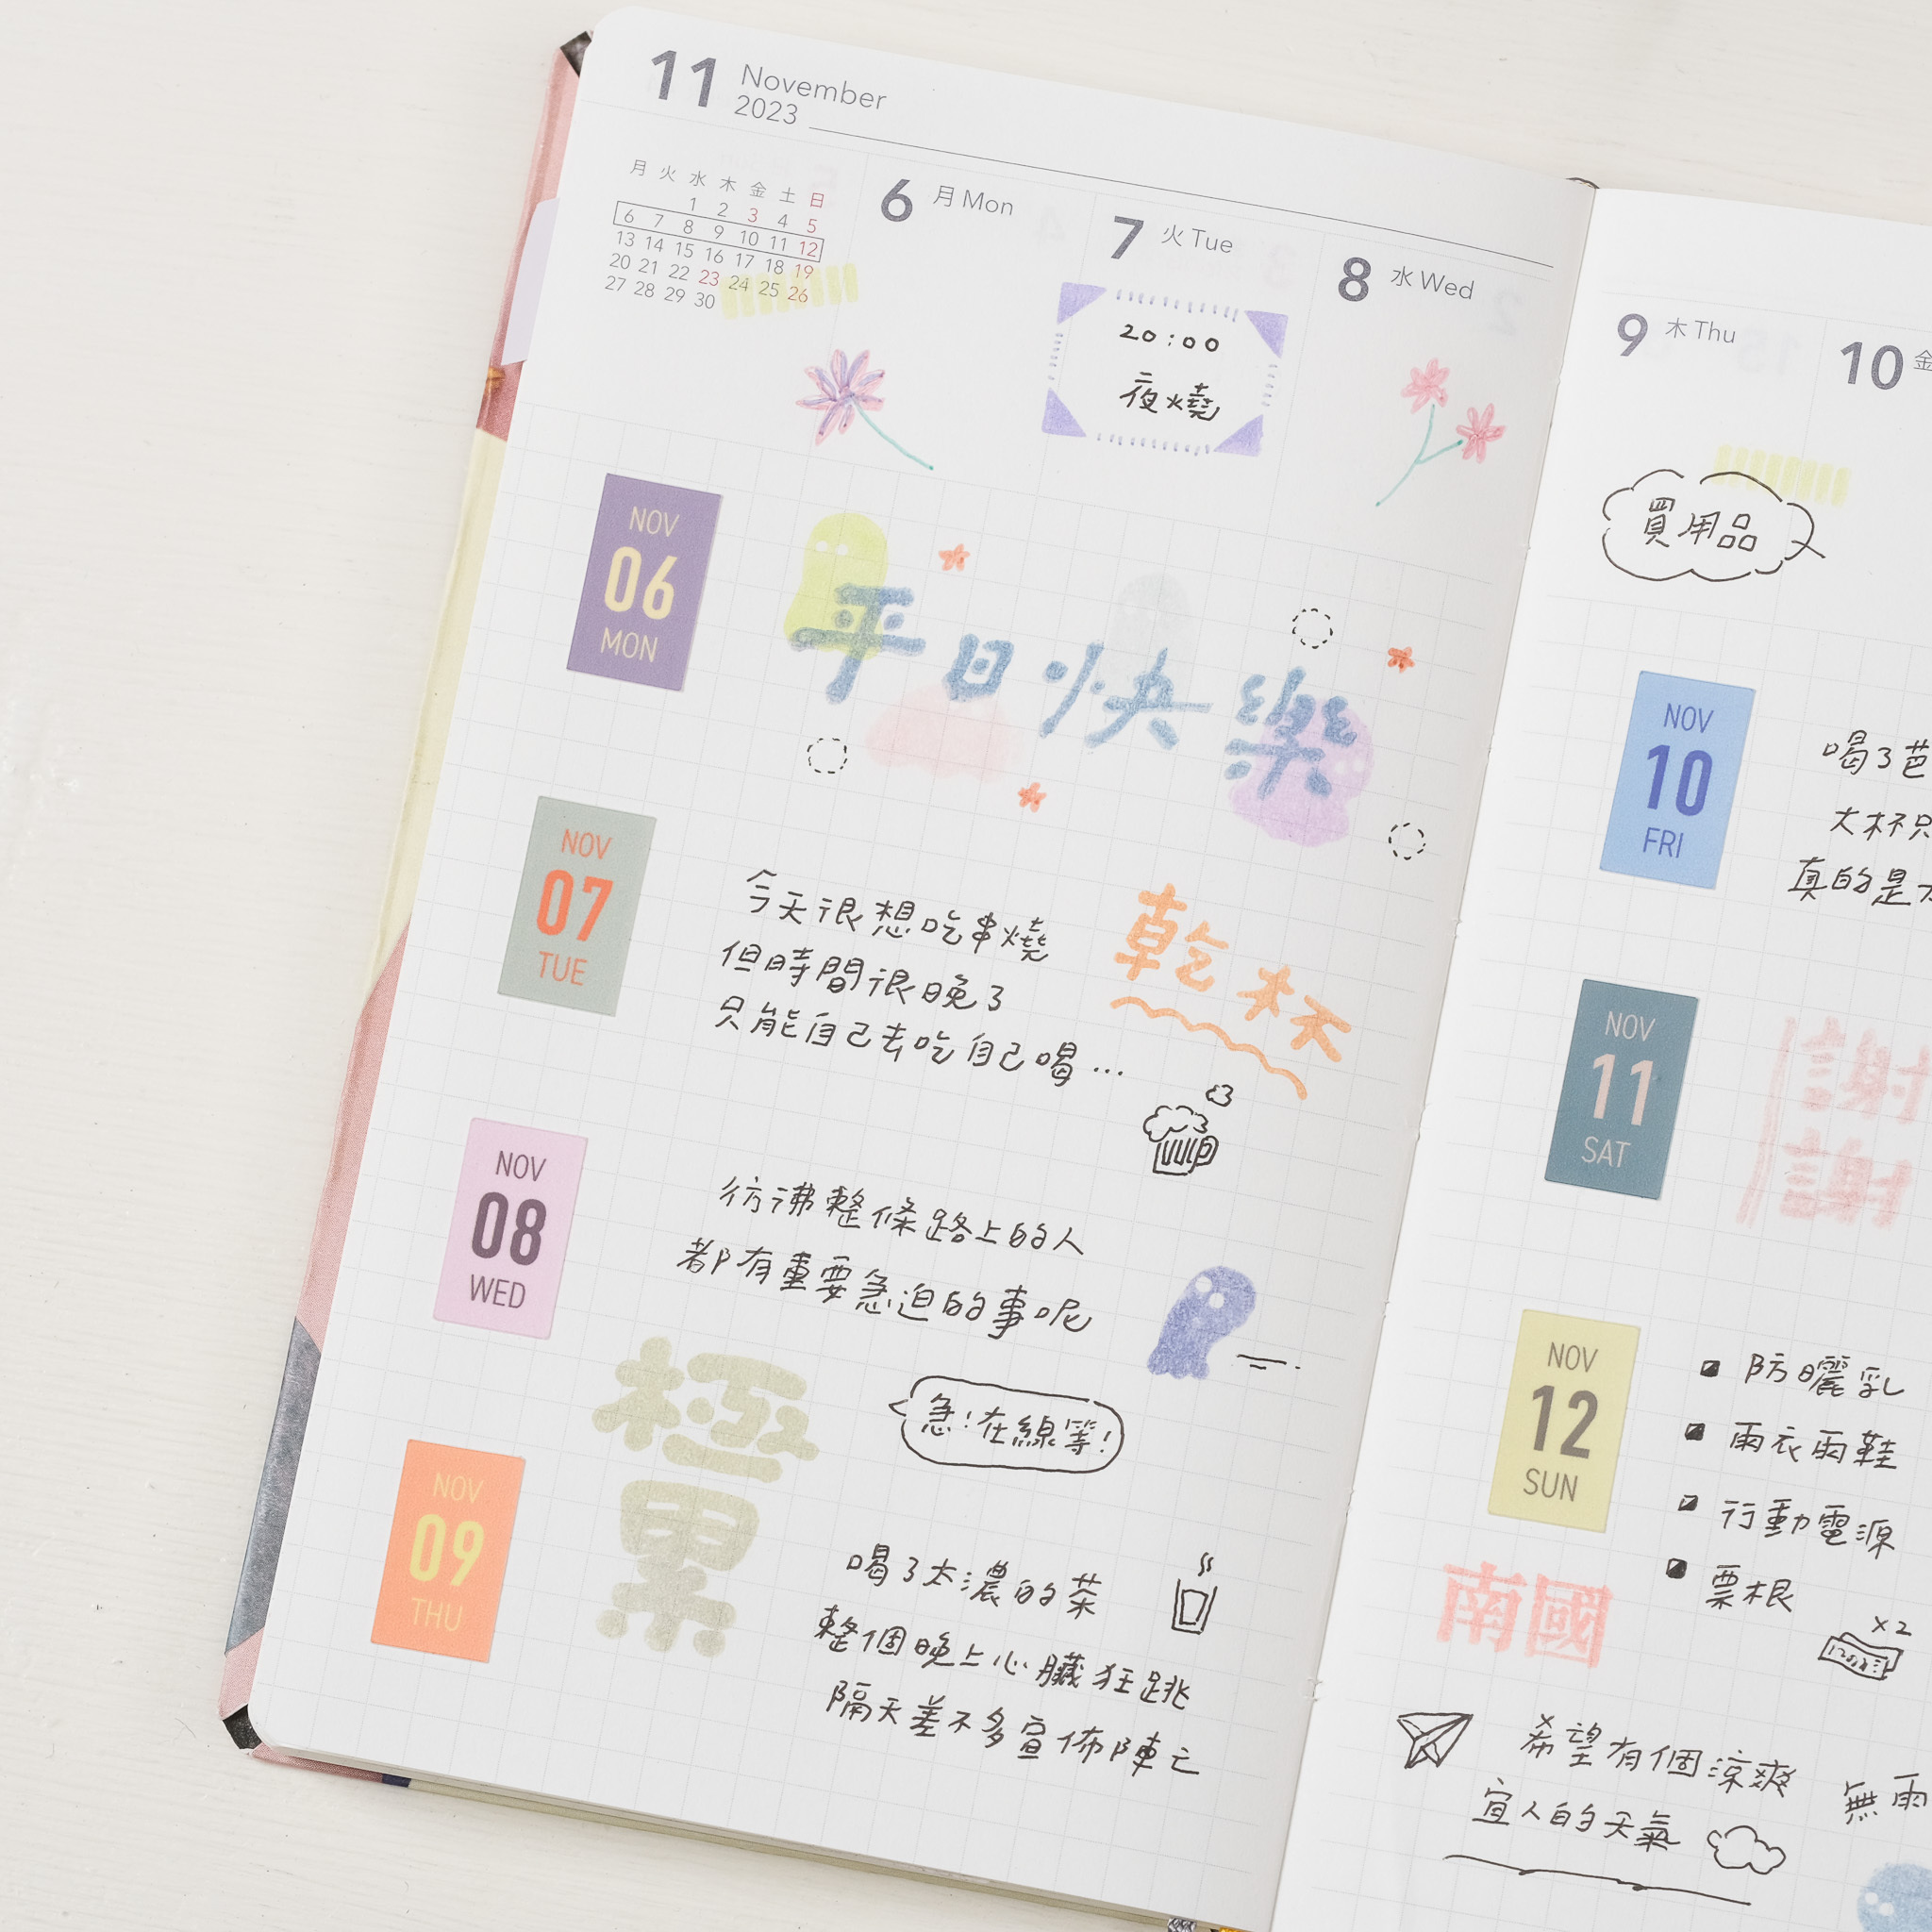 11 November
2023
月 火 水 木 金 土 日
1 2 3 4 5
6 7 8 9 10 11 12
13 14 15 16 17 18 19
20 21 22 23 24 25 26
27 28 29 30
6 月 Mon
7 火 Tue
20:00
夜燒
8 水 Wed
NOV
06
MON
平日快樂
NOV
07
TUE
今天很想吃串燒
但時間很晚了
只能自己去吃自己喝...
乾杯
NOV
08
WED
彷彿整條路上的人
都有重要急迫的事呢
急!在線等!
NOV
09
THU
極
累
喝了太濃的茶
整個晚上心臟狂跳
隔天差不多宣佈陣亡
9 木 Thu
10 金
買用品
NOV
10
FRI
喝了芭
大杯只
真的是
NOV
11
SAT
謝
謝
NOV
12
SUN
防曬乳
雨衣雨鞋
行動電源
票根
x2
南國
希望有個涼爽
宜人的天氣
無雨